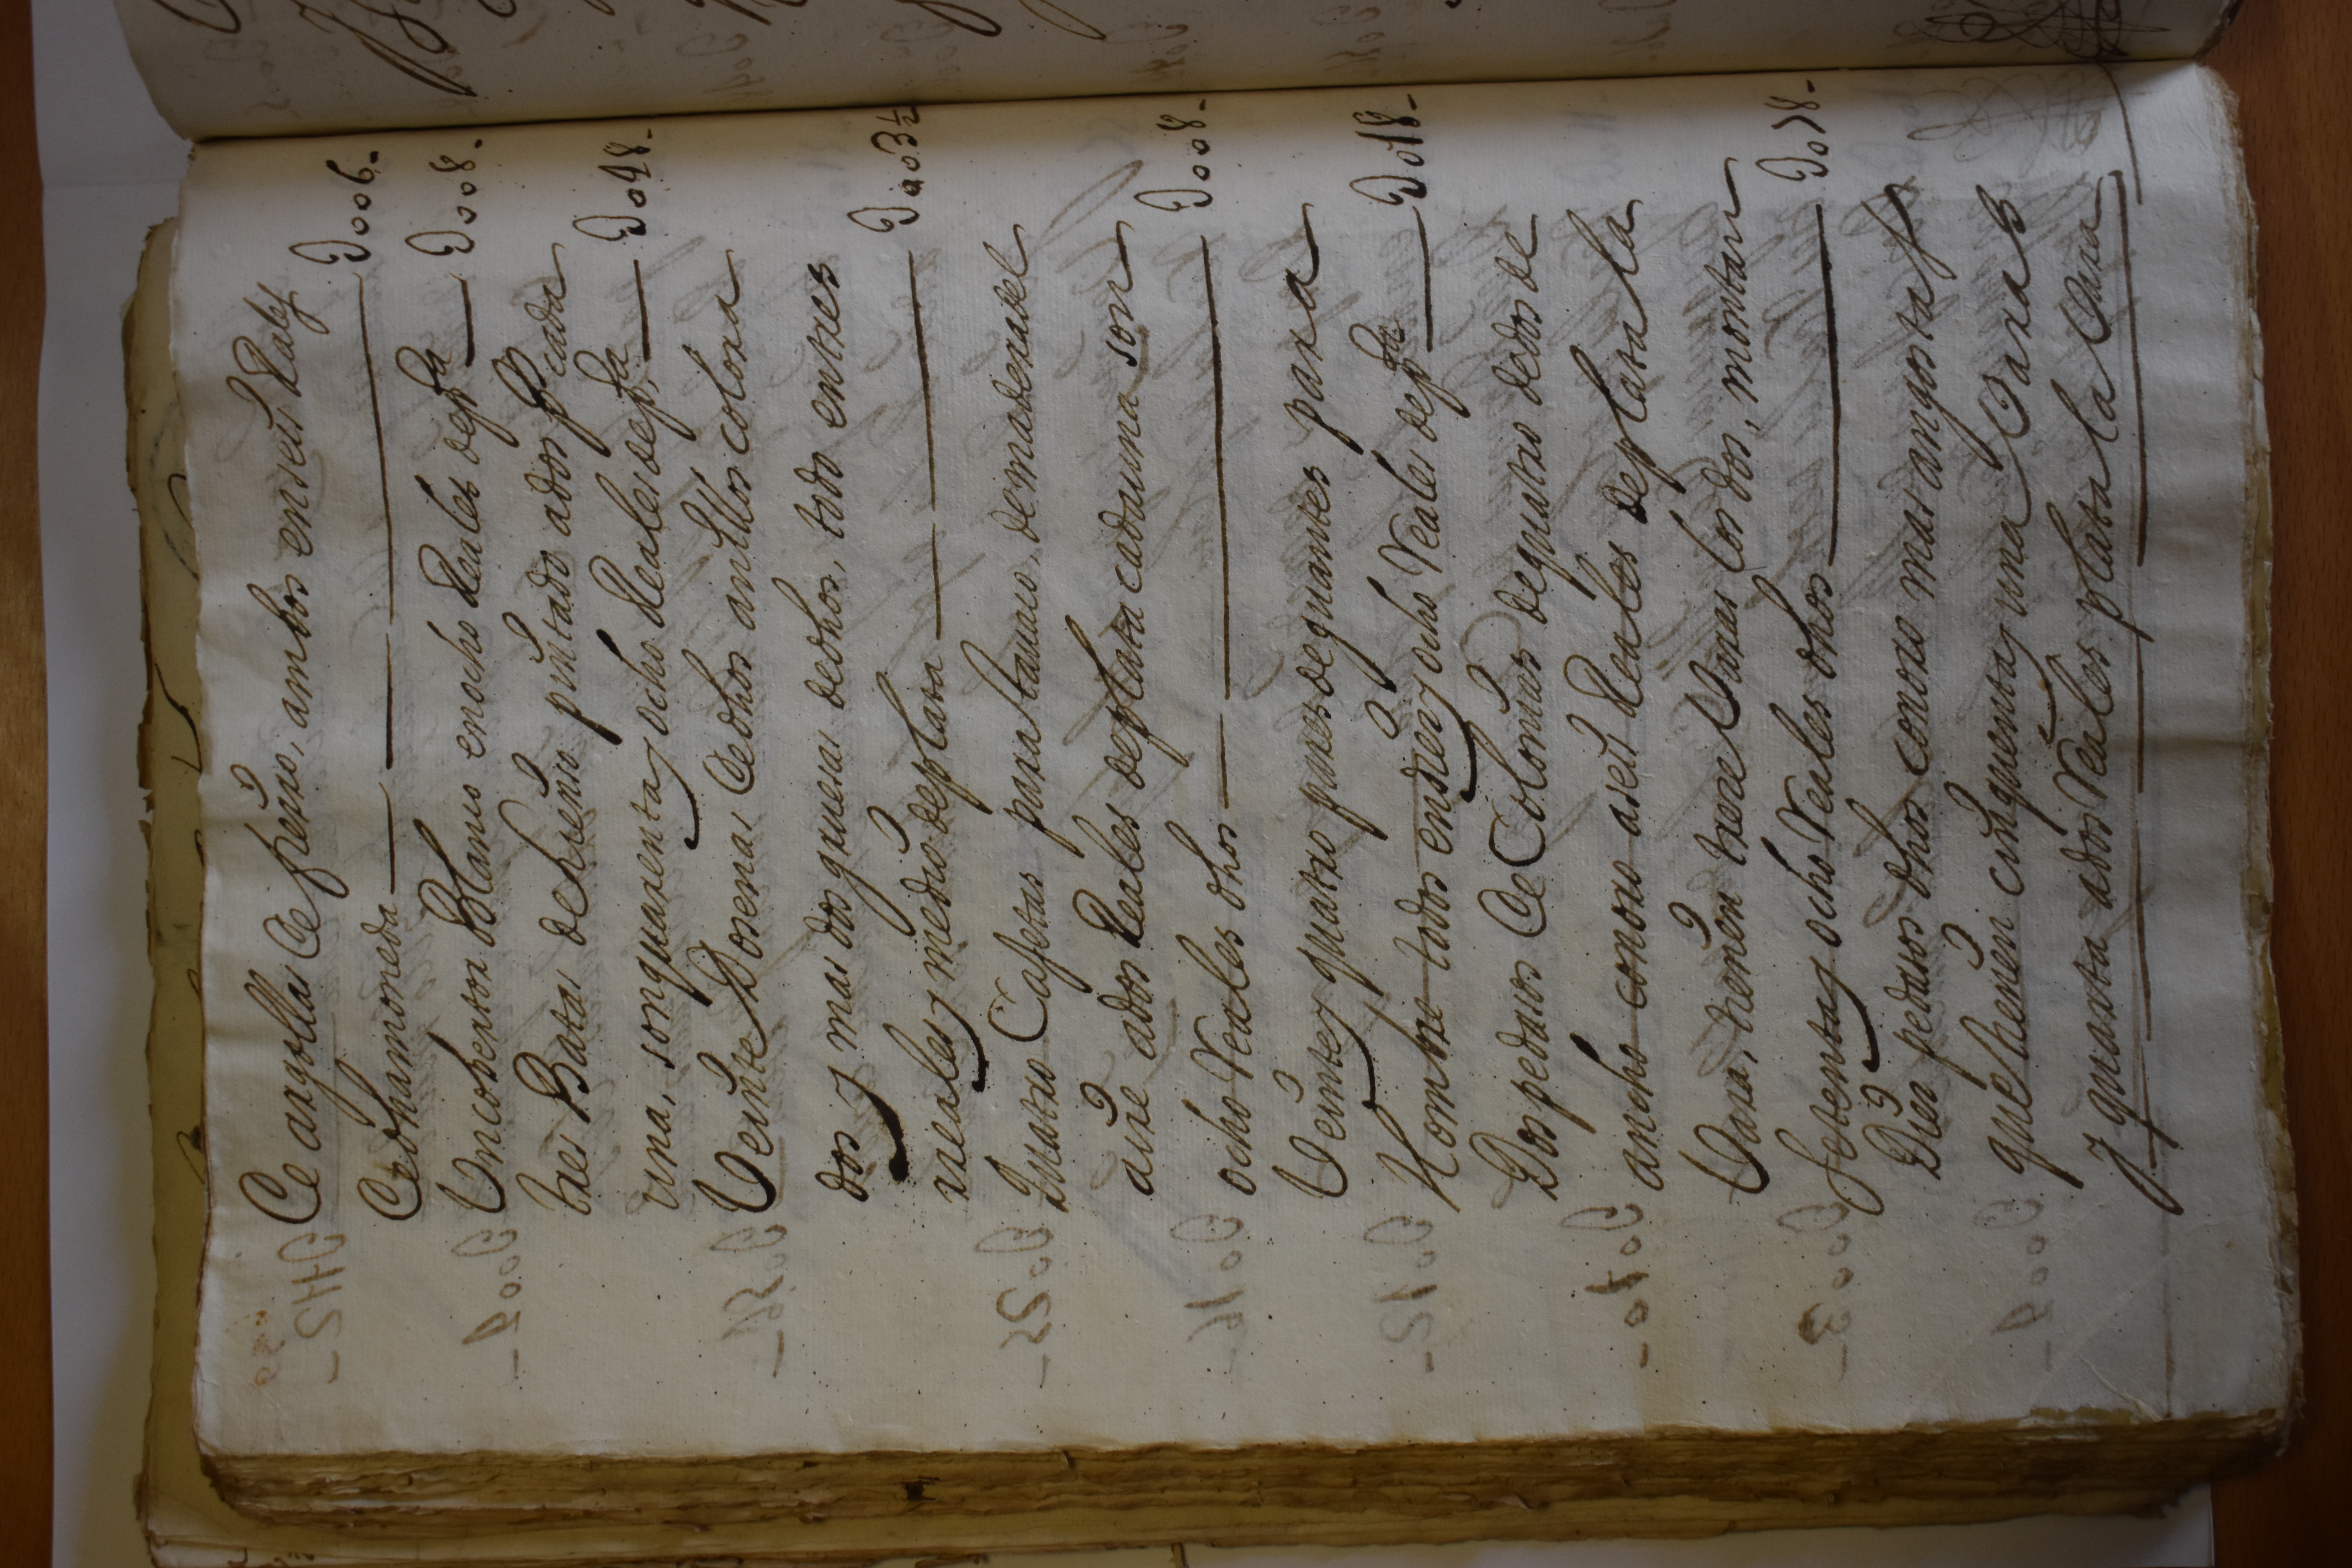 De argollas de fierro, ambos en seis Reales
de dha moneda — Do06-
Un cobertor Blanco en ocho Reales de pta — Do08-
tres Batas de lienzo pintado a dos ps cada
una, son quarenta y ocho Reales de pta — Do48-
Veinte Dosenas de dhos anillos colora
dos y mas dos gruesas de dhos, todo en tres
reales y medio de plata — Do03½
Quatro Cajetas para tavaco, de madera del
aire a dos Reales de plata cada una son
ocho Reales dhos — Do08-
Veinte y quatro pares de guantes para
Hombre todos en dies y ocho Reales de pta — Do18-
Dos pedasos de Colonias de quatro dedos de
ancho como a seis Reales de plata la
Vara, tienen trese Varas los dos, montan
Setenta y ocho Reales dhos — Do78-
Dies pedasos dhos como mas angostas
que tienen cinquenta y una Varas
y quarta a dos Reales plata la Vara